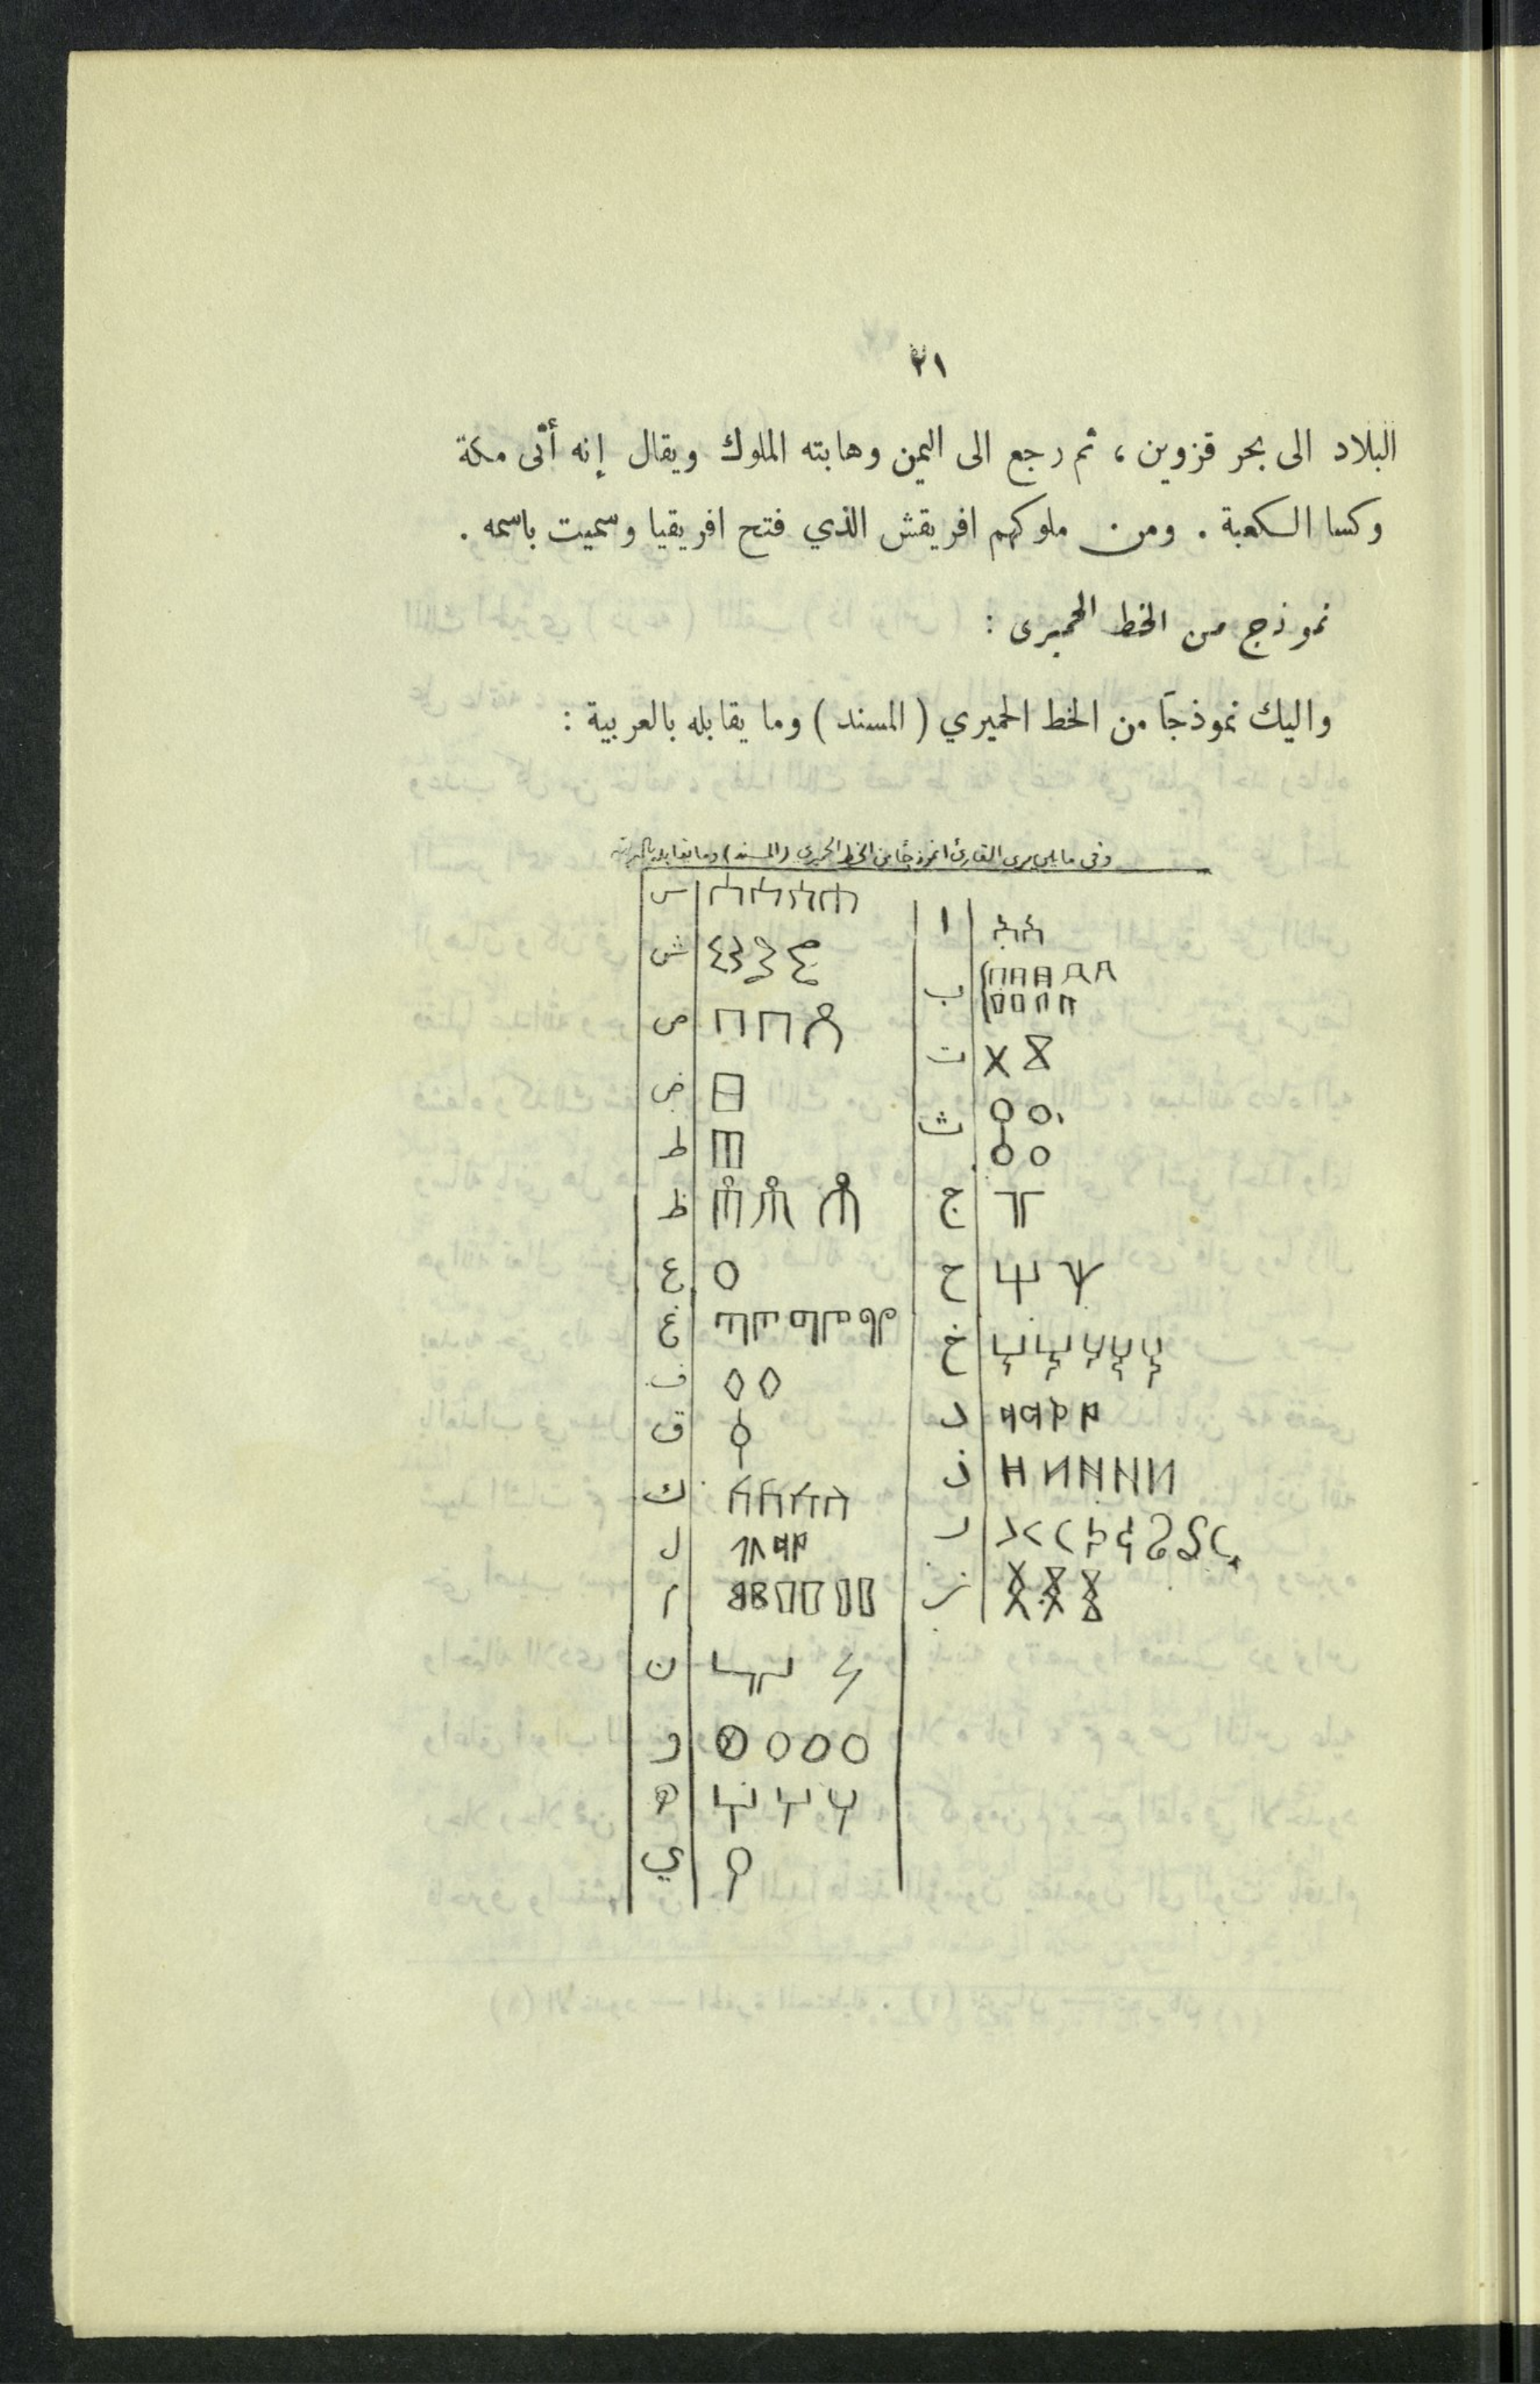 ٢١
البلاد الى بحر قزوين ، ثم رجع الى اليمن وهابته الملوك ويقال إنه أتى مكة
وكسا الكعبة . ومن ملوكهم افريقش الذي فتح افريقيا وسميت باسمه .
نموذج من الخط الحميرى :
واليك نموذجاً من الخط الحميري ( المسند ) وما يقابله بالعربية :
وفى ما يلى يرى القارئ انموذجاً من الخط الحميرى (المسند) وما يقابله بالعربية
ا
ب
ت
ث
ج
ح
خ
د
ذ
ر
ز
س
ش
ص
ض
ط
ظ
ع
غ
ف
ق
ك
ل
م
ن
و
ه
ي